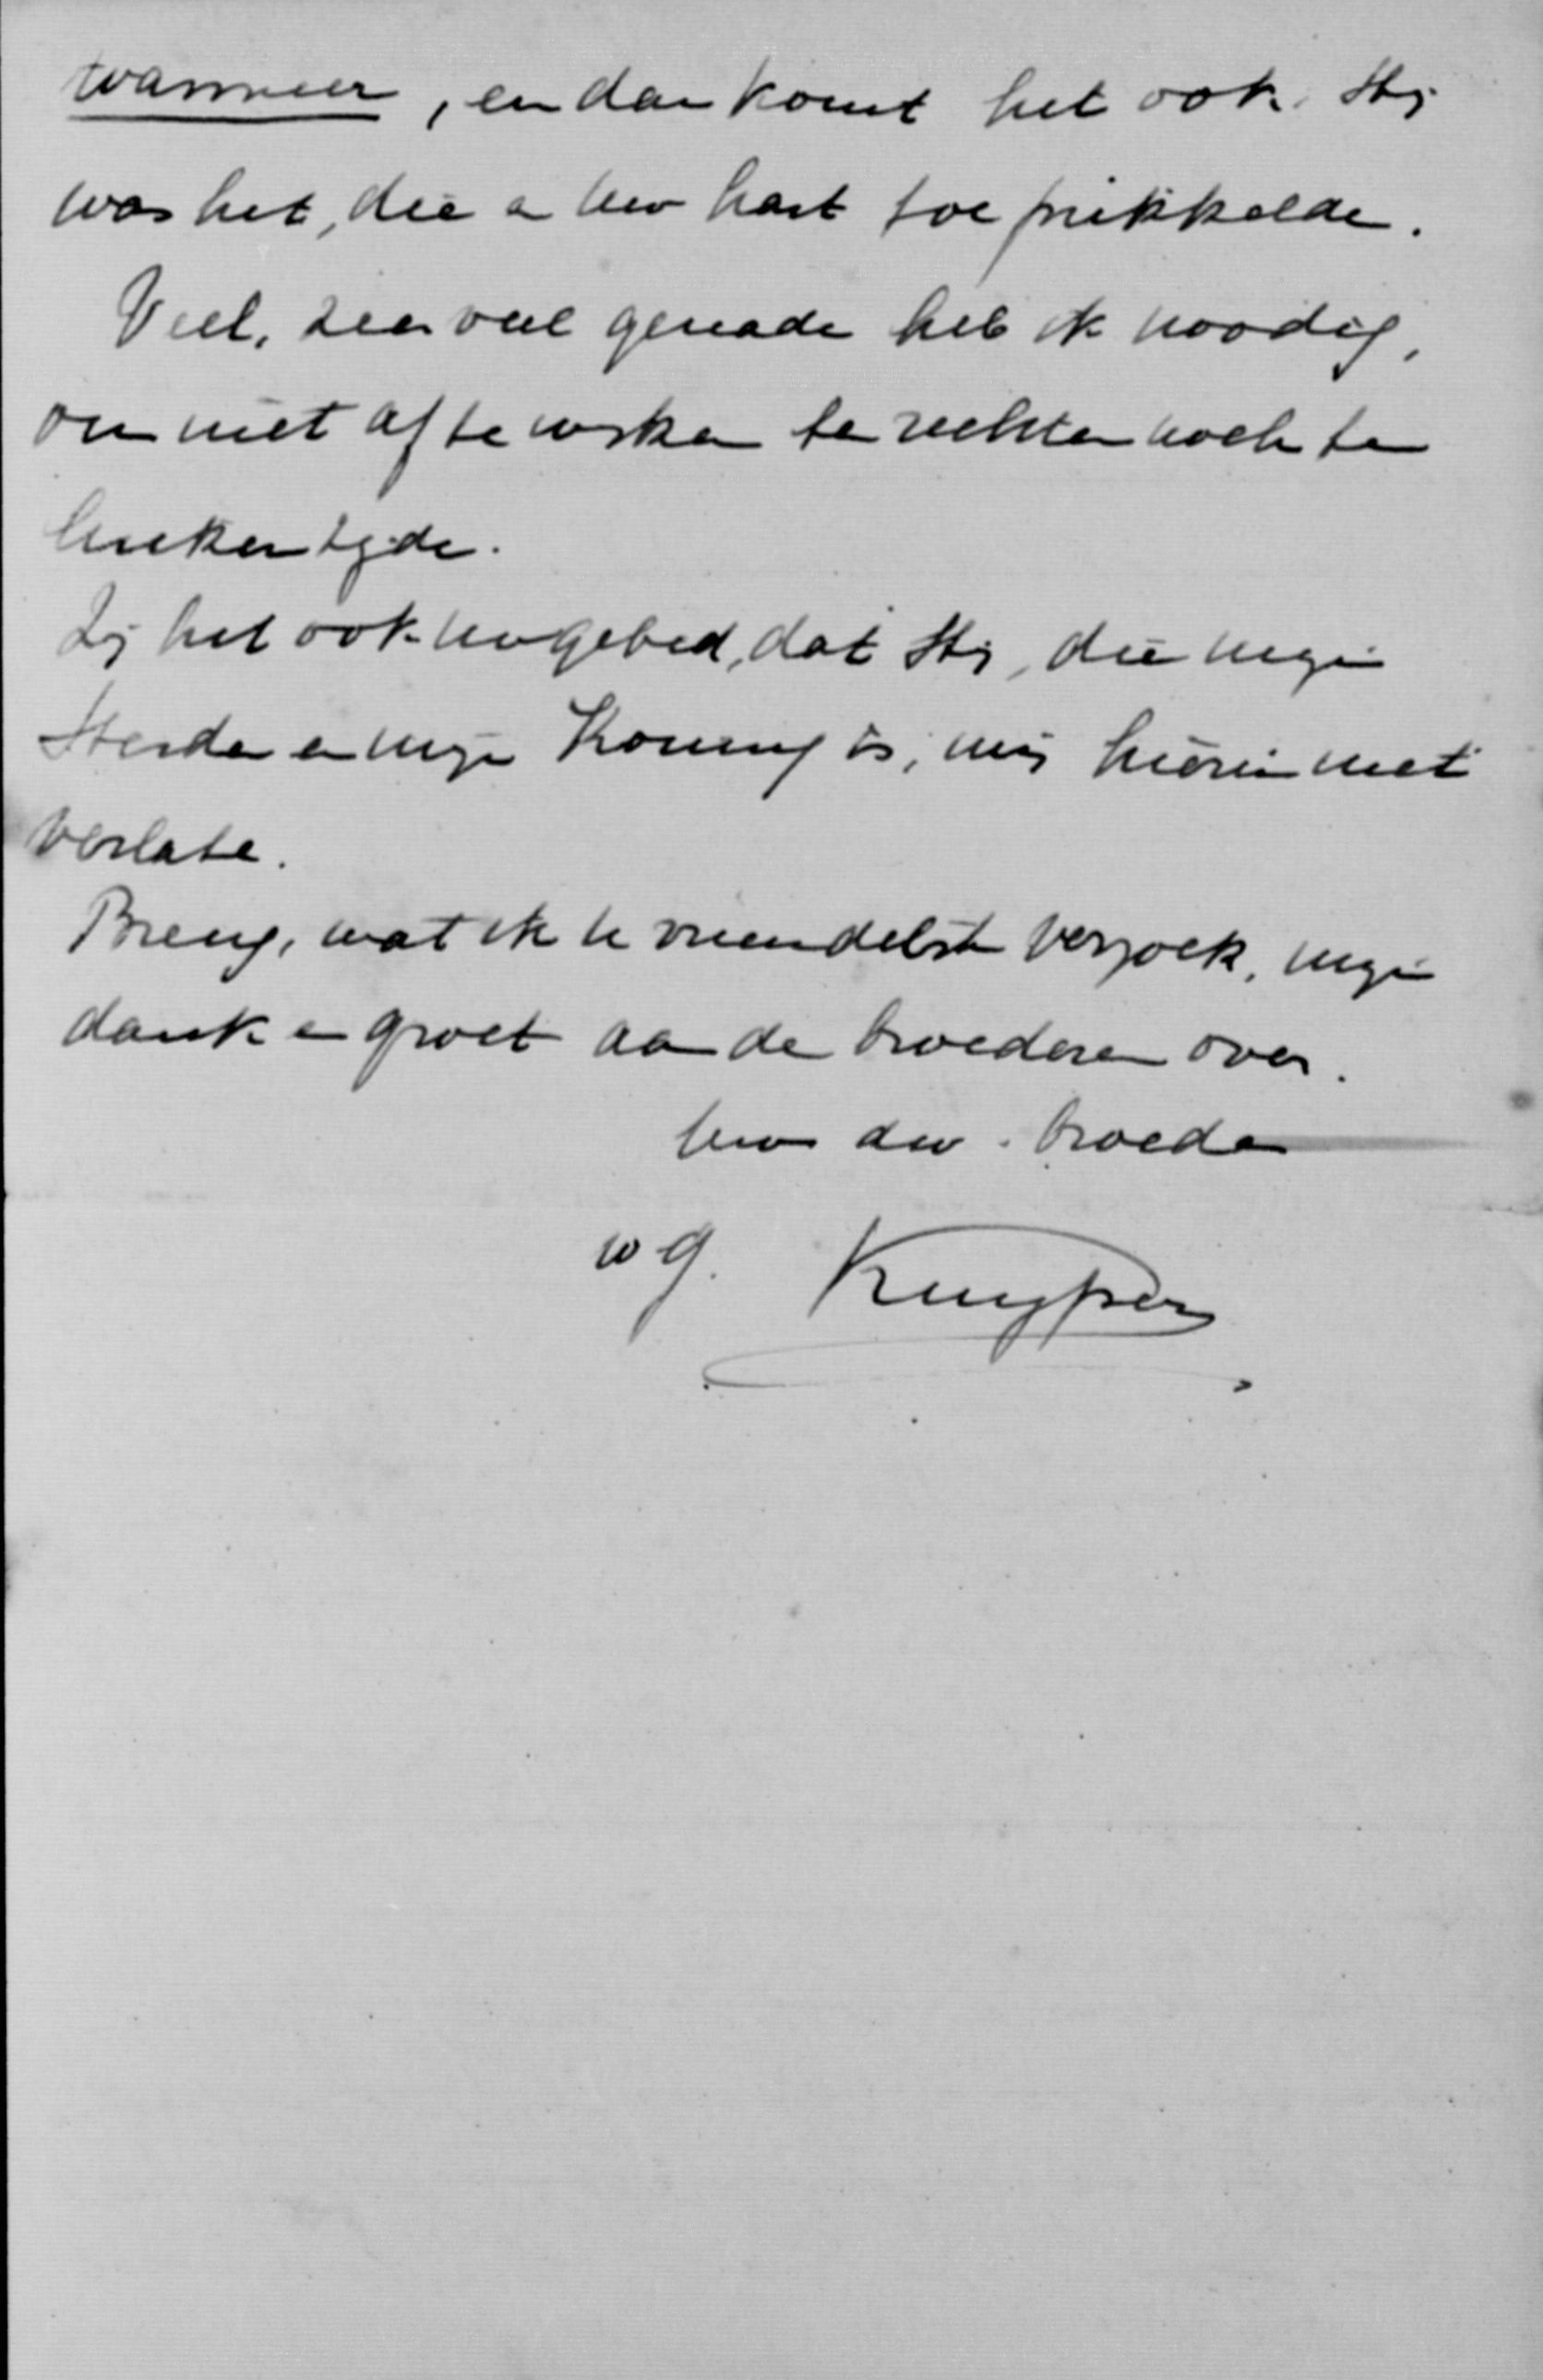 wanneer, en dan komt het ook. Hij
was het, die er uw hart toe prikkelde.
Veel, zeer veel genade heb ik noodig,
om niet af te wijken ter rechter noch ter
linkerzijde.
Zij het ook uw gebed, dat Hij, die mijn
Herder en mijn Koning is, mij hierin niet
verlate.
Breng, wat ik U vriendelijk verzoek, mijn
dank en groet aan de broederen over.
Uw dw. broeder
w g. Kuyper